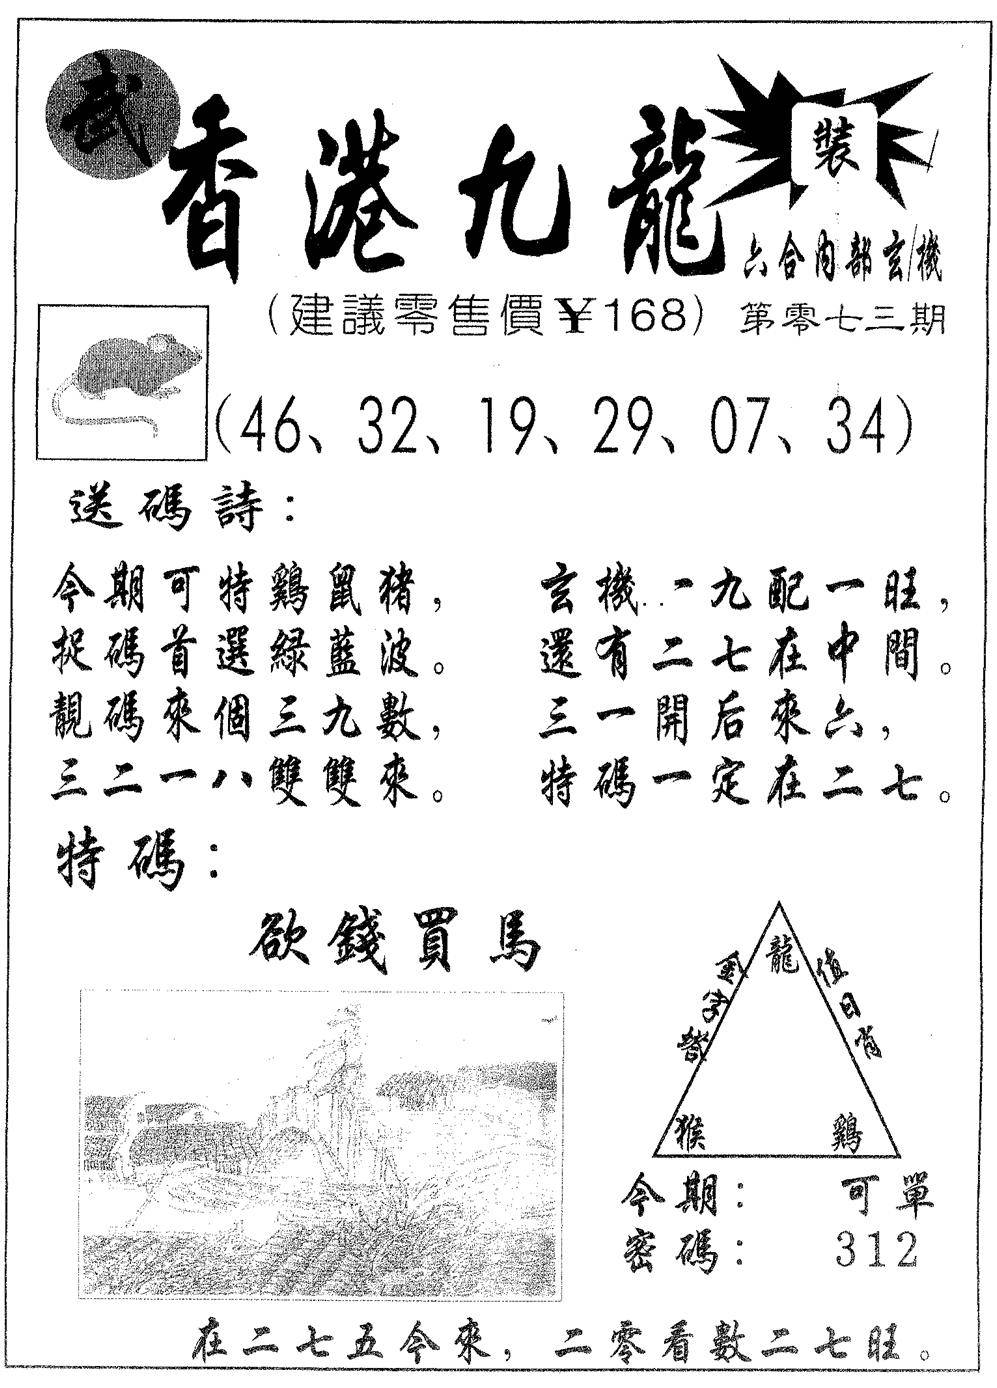 武
香港九龍
裝
六合内部玄機
(建議零售價¥168)
第零七三期
(46、32、19、29、07、34)
送碼詩：
今期可特鷄鼠猪，
捉碼首選緑藍波。
靚碼來個三九數，
三二一八雙雙來。
玄機一九配一旺，
還有二七在中間。
三一開后來六，
特碼一定在二七。
特碼：
欲錢買馬
龍
金字
值日肖
猴
鷄
今期：可單
密碼：312
在二七五今來，二零看數二七旺。